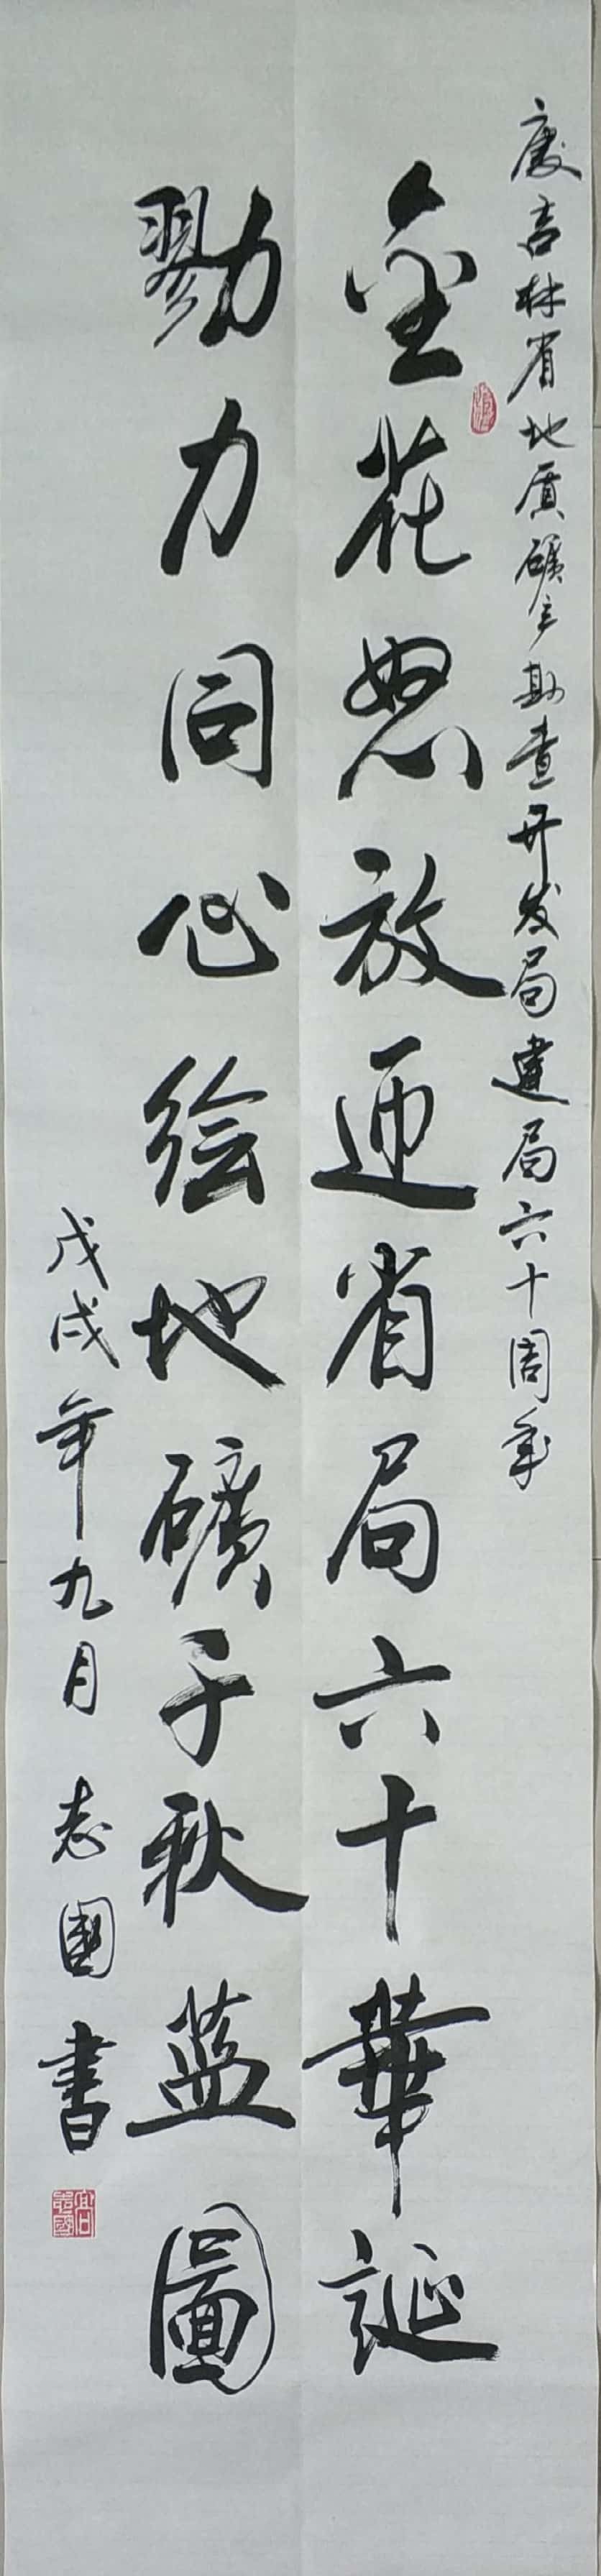 庆吉林省地质礦产勘查开发局建局六十周年
金花怒放迎省局六十華誕
勠力同心绘地礦千秋蓝圖
戊戌年九月志國書